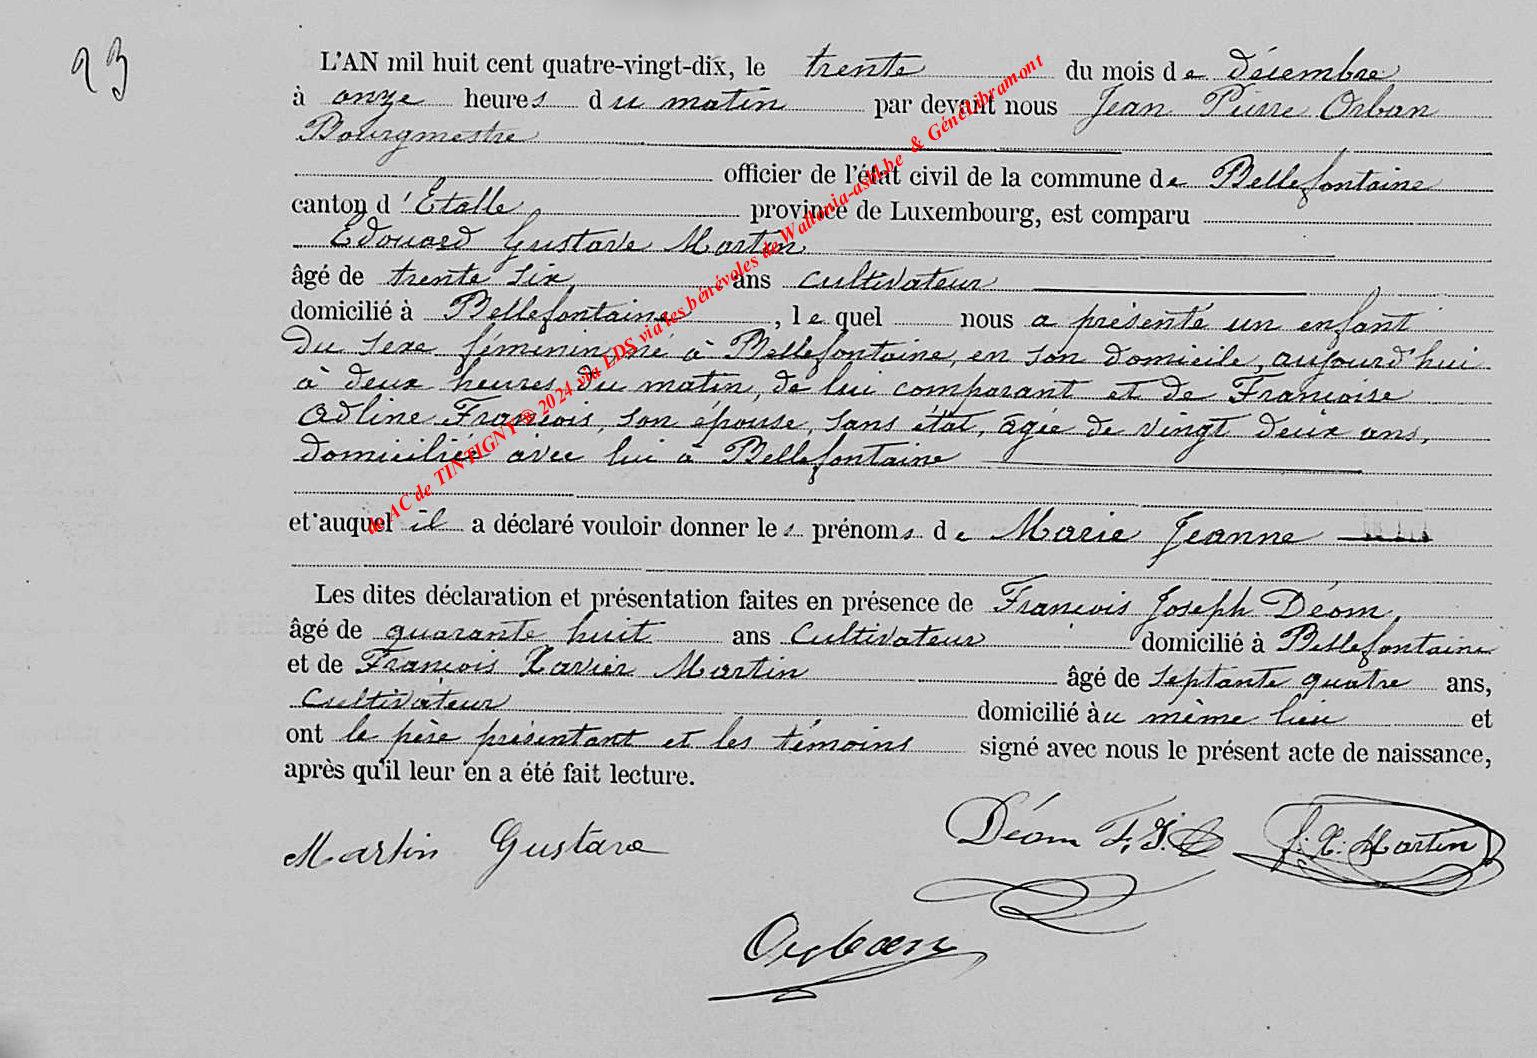 23
L'AN mil huit cent quatre-vingt-dix, le trente du mois de décembre
à onze heures du matin par devant nous Jean Pierre Orban
Bourgmestre
officier de l'état civil de la commune de Bellefontaine
canton d'Etalle province de Luxembourg, est comparu
Edouard Gustave Martin
âgé de trente six ans cultivateur
domicilié à Bellefontaine, lequel nous a présenté un enfant
du sexe féminin, né à Bellefontaine, en son domicile, aujourd'hui
à deux heures du matin, de lui comparant et de Françoise
Adline François, son épouse, sans état, âgée de vingt deux ans,
domiciliée avec lui à Bellefontaine
et auquel il a déclaré vouloir donner les prénoms de Marie Jeanne
Les dites déclaration et présentation faites en présence de François Joseph Déom
âgé de quarante huit ans cultivateur domicilié à Bellefontaine
et de François Xavier Martin âgé de septante quatre ans,
cultivateur domicilié au même lieu et
ont le père présentant et les témoins signé avec nous le présent acte de naissance,
après qu'il leur en a été fait lecture.
Martin Gustave Déom F. J. f. X. Martin
Orban
de AC de TINTIGNY ® 2024 via LDS via les bénévoles de Wallonia-asbl.be & GénéLibramont